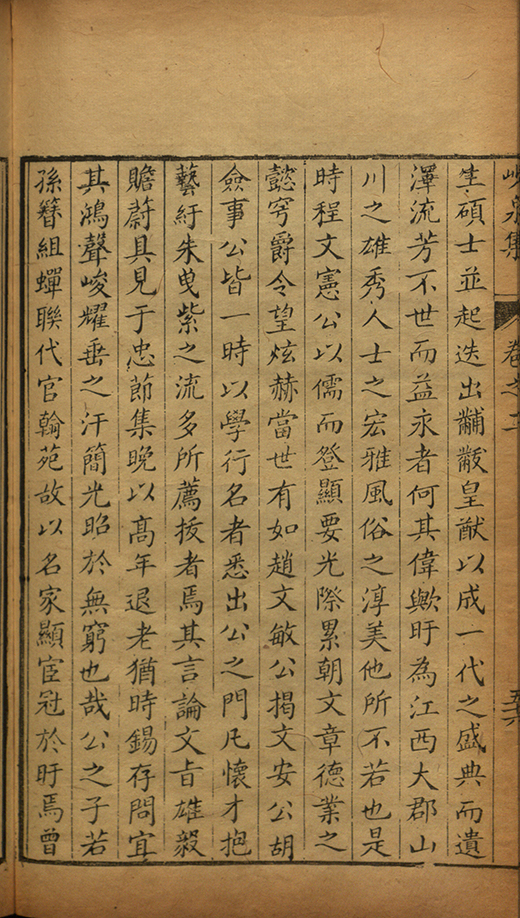 峴泉集 卷之二 五十六
生碩士並起迭出黼黻皇猷以成一代之盛典而遺
澤流芳不世而益永者何其偉歟盱為江西大郡山
川之雄秀人士之宏雅風俗之淳美他所不若也是
時程文憲公以儒而登顯要光際累朝文章德業之
懿穹爵令望炫赫當世有如趙文敏公揭文安公胡
僉事公皆一時以學行名者悉出公之門凡懷才抱
藝紆朱曳紫之流多所薦拔者焉其言論文旨雄毅
贍蔚具見于忠節集晚以高年退老猶時錫存問宜
其鴻聲峻耀垂之汗簡光昭於無窮也哉公之子若
孫簪組蟬聯代官翰苑故以名家顯宦冠於盱焉曾